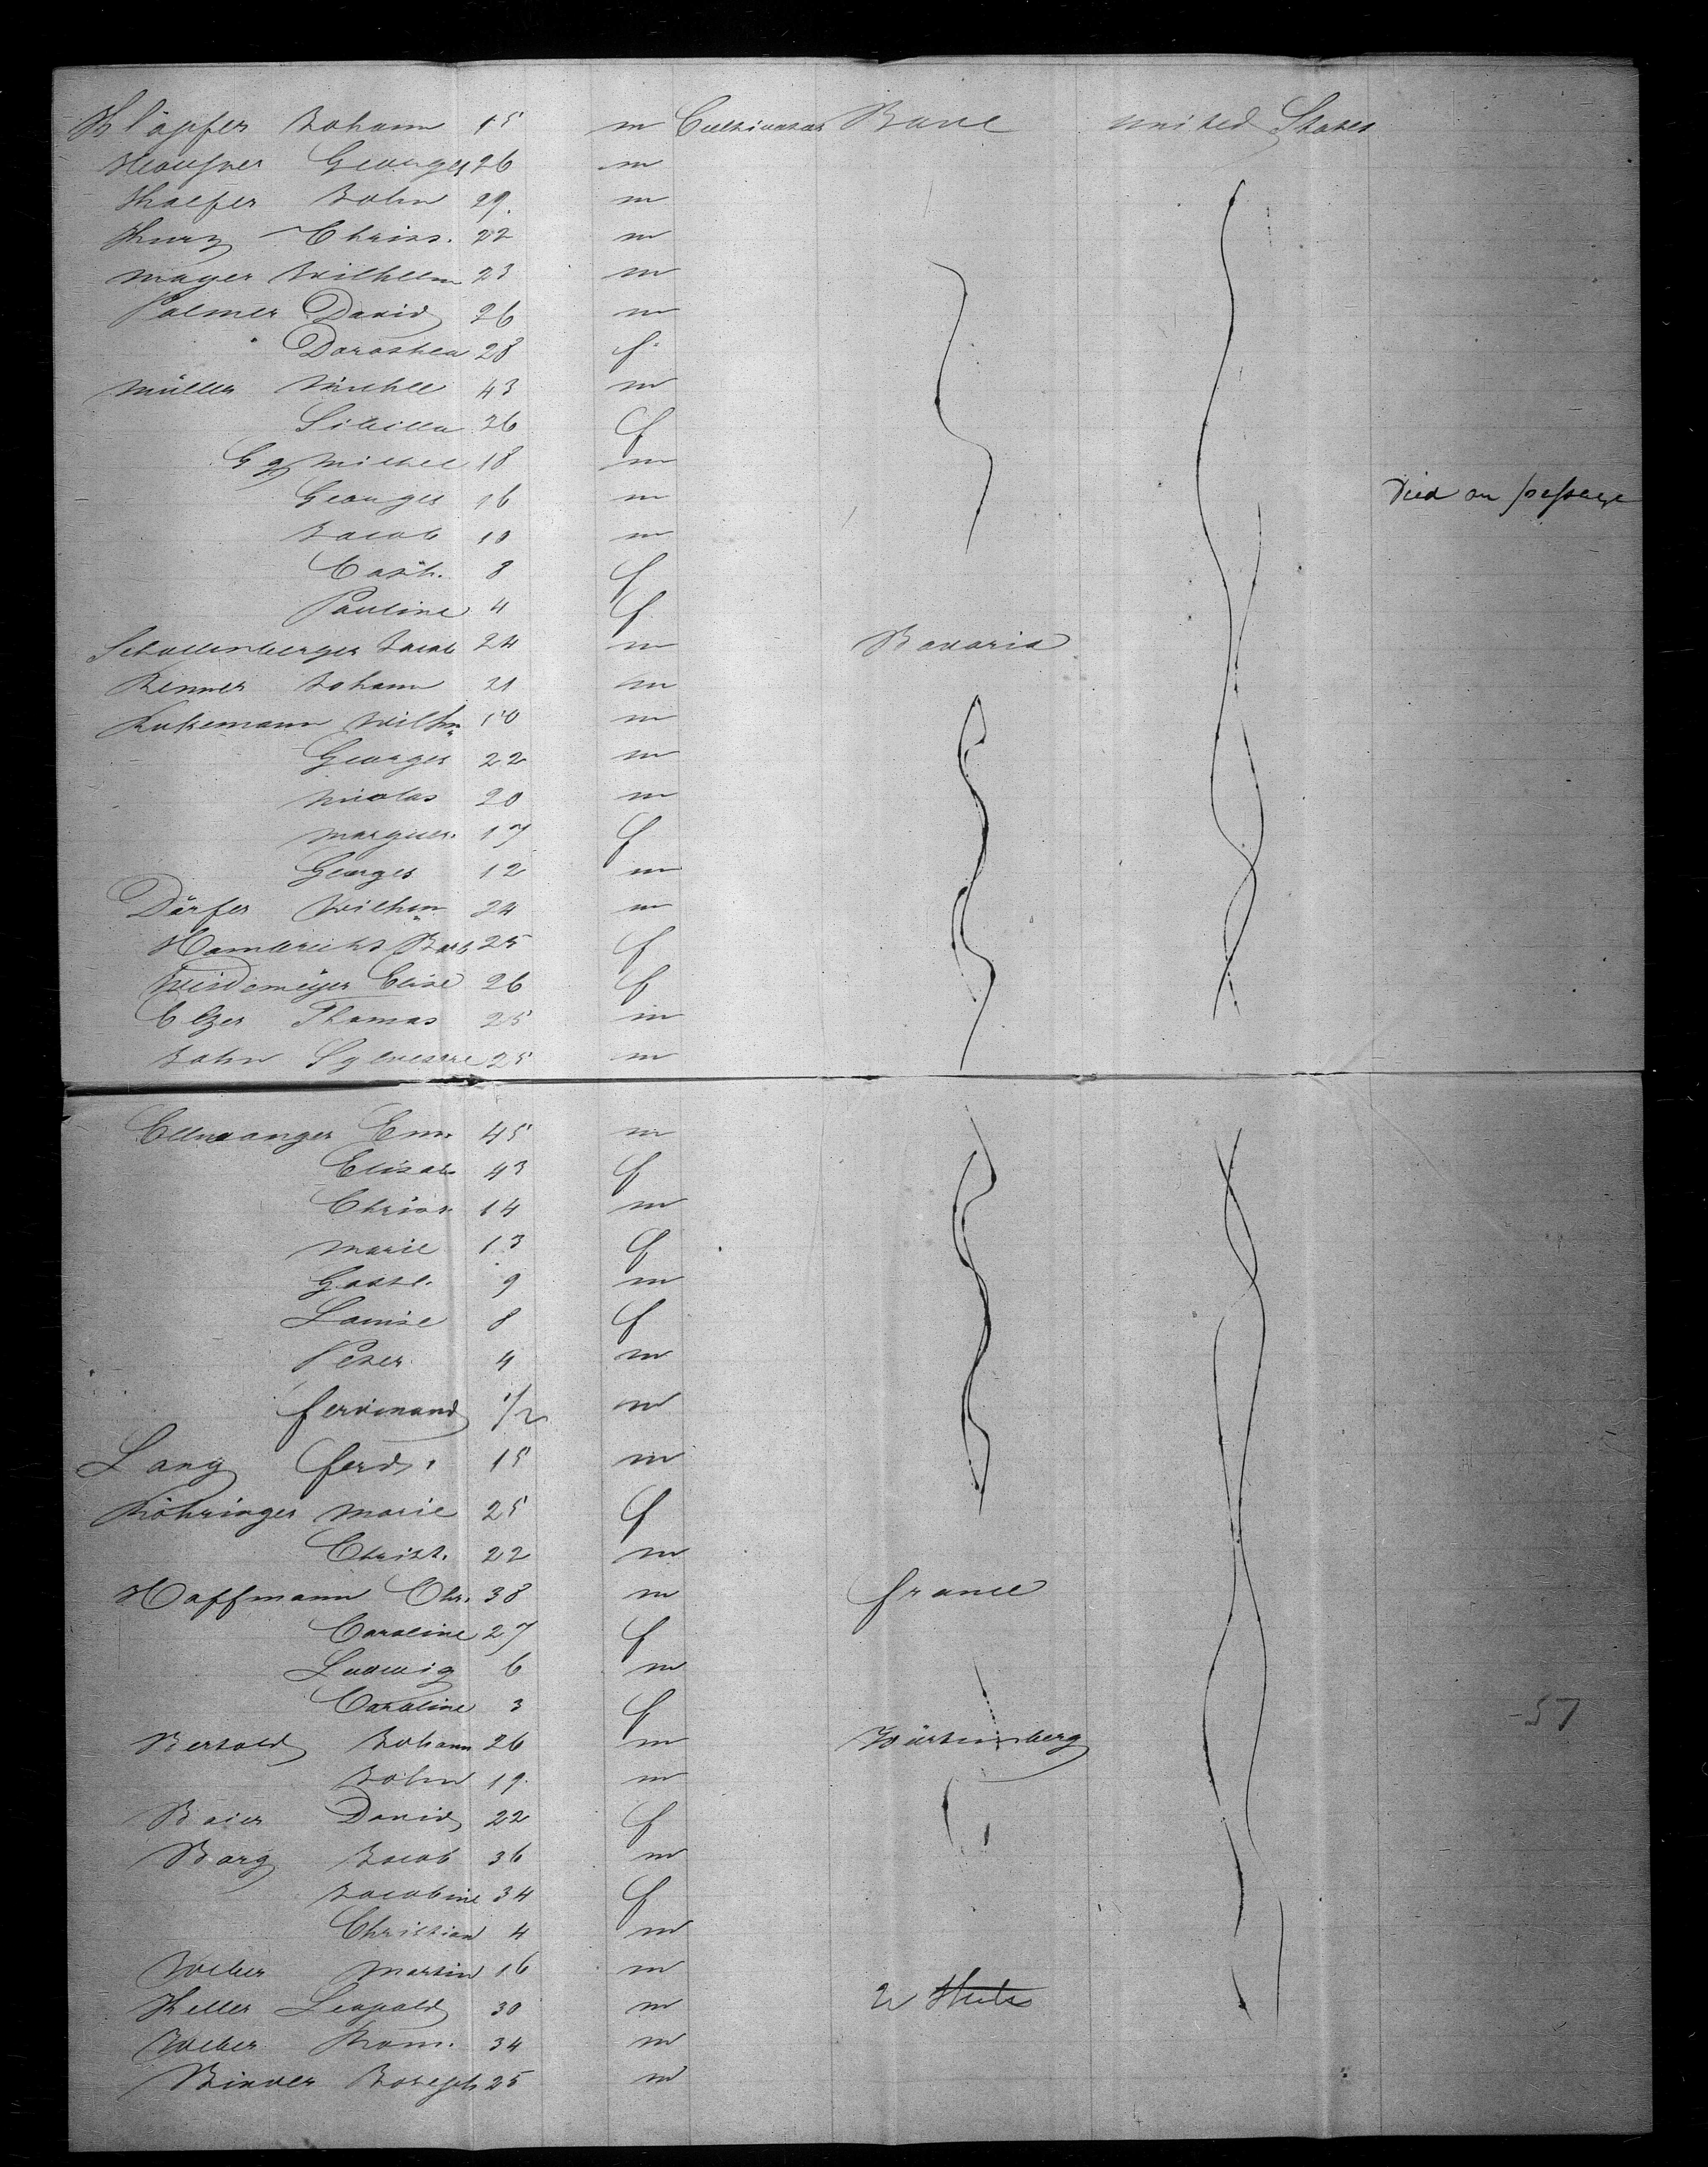 Klöpfer Johann 15 m Cultivator Bade United States
Heausner Georges 26 m
Kaefer John 29. m
Kurz Christ. 22 m
Mayer Wilhelm 23 m
Palmer David 26 m
Dorothea 28 f
Müller Michel 43 m
Sibilla 26 f
Gg Michel 18 m
Georges 16 m Died on passage
Jacob 10 m
Cath. 8 f
Pauline 4 f
Schallenberger Jacob 24 m Bavaria
Renner Johann 21 m
Kukemann Wilhm 50 m
Georges 22 m
Nicolas 20 m
Marguer. 17 f
Georges 12 m
Dörfer Wilhm 24 m
Hambrecht Barb 25 f
Weidemeyer Elise 26 f
Elzer Thomas 25 m
John Sylvestre 25 m
Ellwanger Em. 45 m
Elisab 43 f
Christ. 14 m
Marie 13 f
Gottl. 9 m
Louise 8 f
Peter 4 m
Ferdinand 1/2 m
Lang Ferd. 15 m
Köhringer Marie 25 f
Christ. 22 m
Hoffmann Chr. 38 m France
Caroline 27 f
Ludwig 6 m
Caroline 3 f -57
Bertold Johann 26 m Würtemberg
John 19. m
Baier David 22 f
Barg Jacob 36 m
Jacobine 34 f
Christian 4 m
Weber Martin 16 m
Keller Leopold 30 m
Weber Rom. 34 m
Binder Joseph 25 m